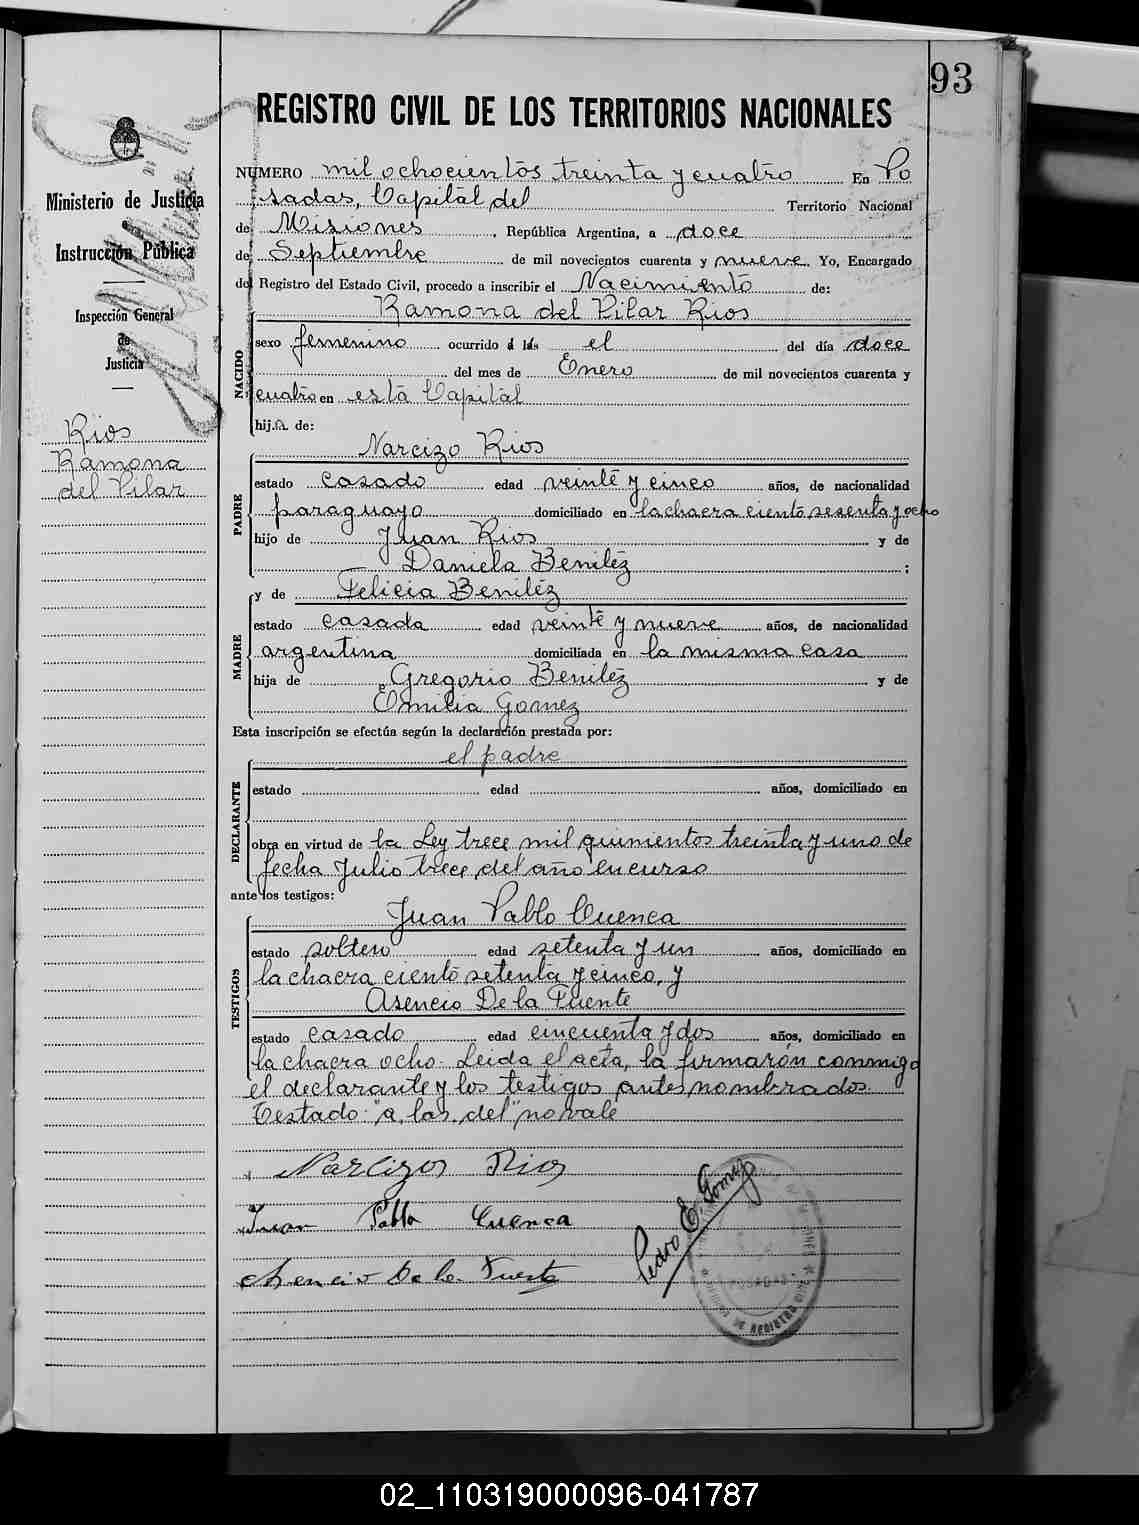 93
REGISTRO CIVIL DE LOS TERRITORIOS NACIONALES
Ministerio de Justicia
e
Instrucción Pública
Inspección General
de
Justicia
Rios
Ramona
del Pilar
NUMERO mil ochocientos treinta y cuatro En Po
sadas, Capital del Territorio Nacional
de Misiones, República Argentina, a doce
de Septiembre de mil novecientos cuarenta y nueve. Yo, Encargado
del Registro del Estado Civil, procedo a inscribir el Nacimiento de:
Ramona del Pilar Rios
NACIDO
sexo femenino ocurrido á las el del día doce
del mes de Enero de mil novecientos cuarenta y
cuatro en esta Capital
hij.a. de:
Narcizo Rios
PADRE
estado casado edad veinte y cinco años, de nacionalidad
paraguayo domiciliado en la chacra ciento sesenta y ocho
hijo de Juan Rios y de
Daniela Benitéz ;
y de Felicia Benitéz
MADRE
estado casada edad veinte y nueve años, de nacionalidad
argentina domiciliada en la misma casa
hija de Gregorio Benitéz y de
Emilia Gomez
Esta inscripción se efectúa según la declaración prestada por:
el padre
DECLARANTE
estado edad años, domiciliado en
obra en virtud de la Ley trece mil quinientos treinta y uno de
fecha Julio trece del año en curso
ante los testigos:
Juan Pablo Cuenca
TESTIGOS
estado soltero edad setenta y un años, domiciliado en
la chacra ciento setenta y cinco, y
Asencio De la Fuente
estado casado edad cincuenta y dos años, domiciliado en
la chacra ocho. Leida el acta, la firmarón conmigo
el declarante y los testigos antes nombrados.
Testado: "a, las, del" no vale
Narcizo Rios
Juan Pablo Cuenca
Asencio De la Fuente
Pedro E. Gomez
POSADAS
REGISTRO CIVIL
02_110319000096-041787